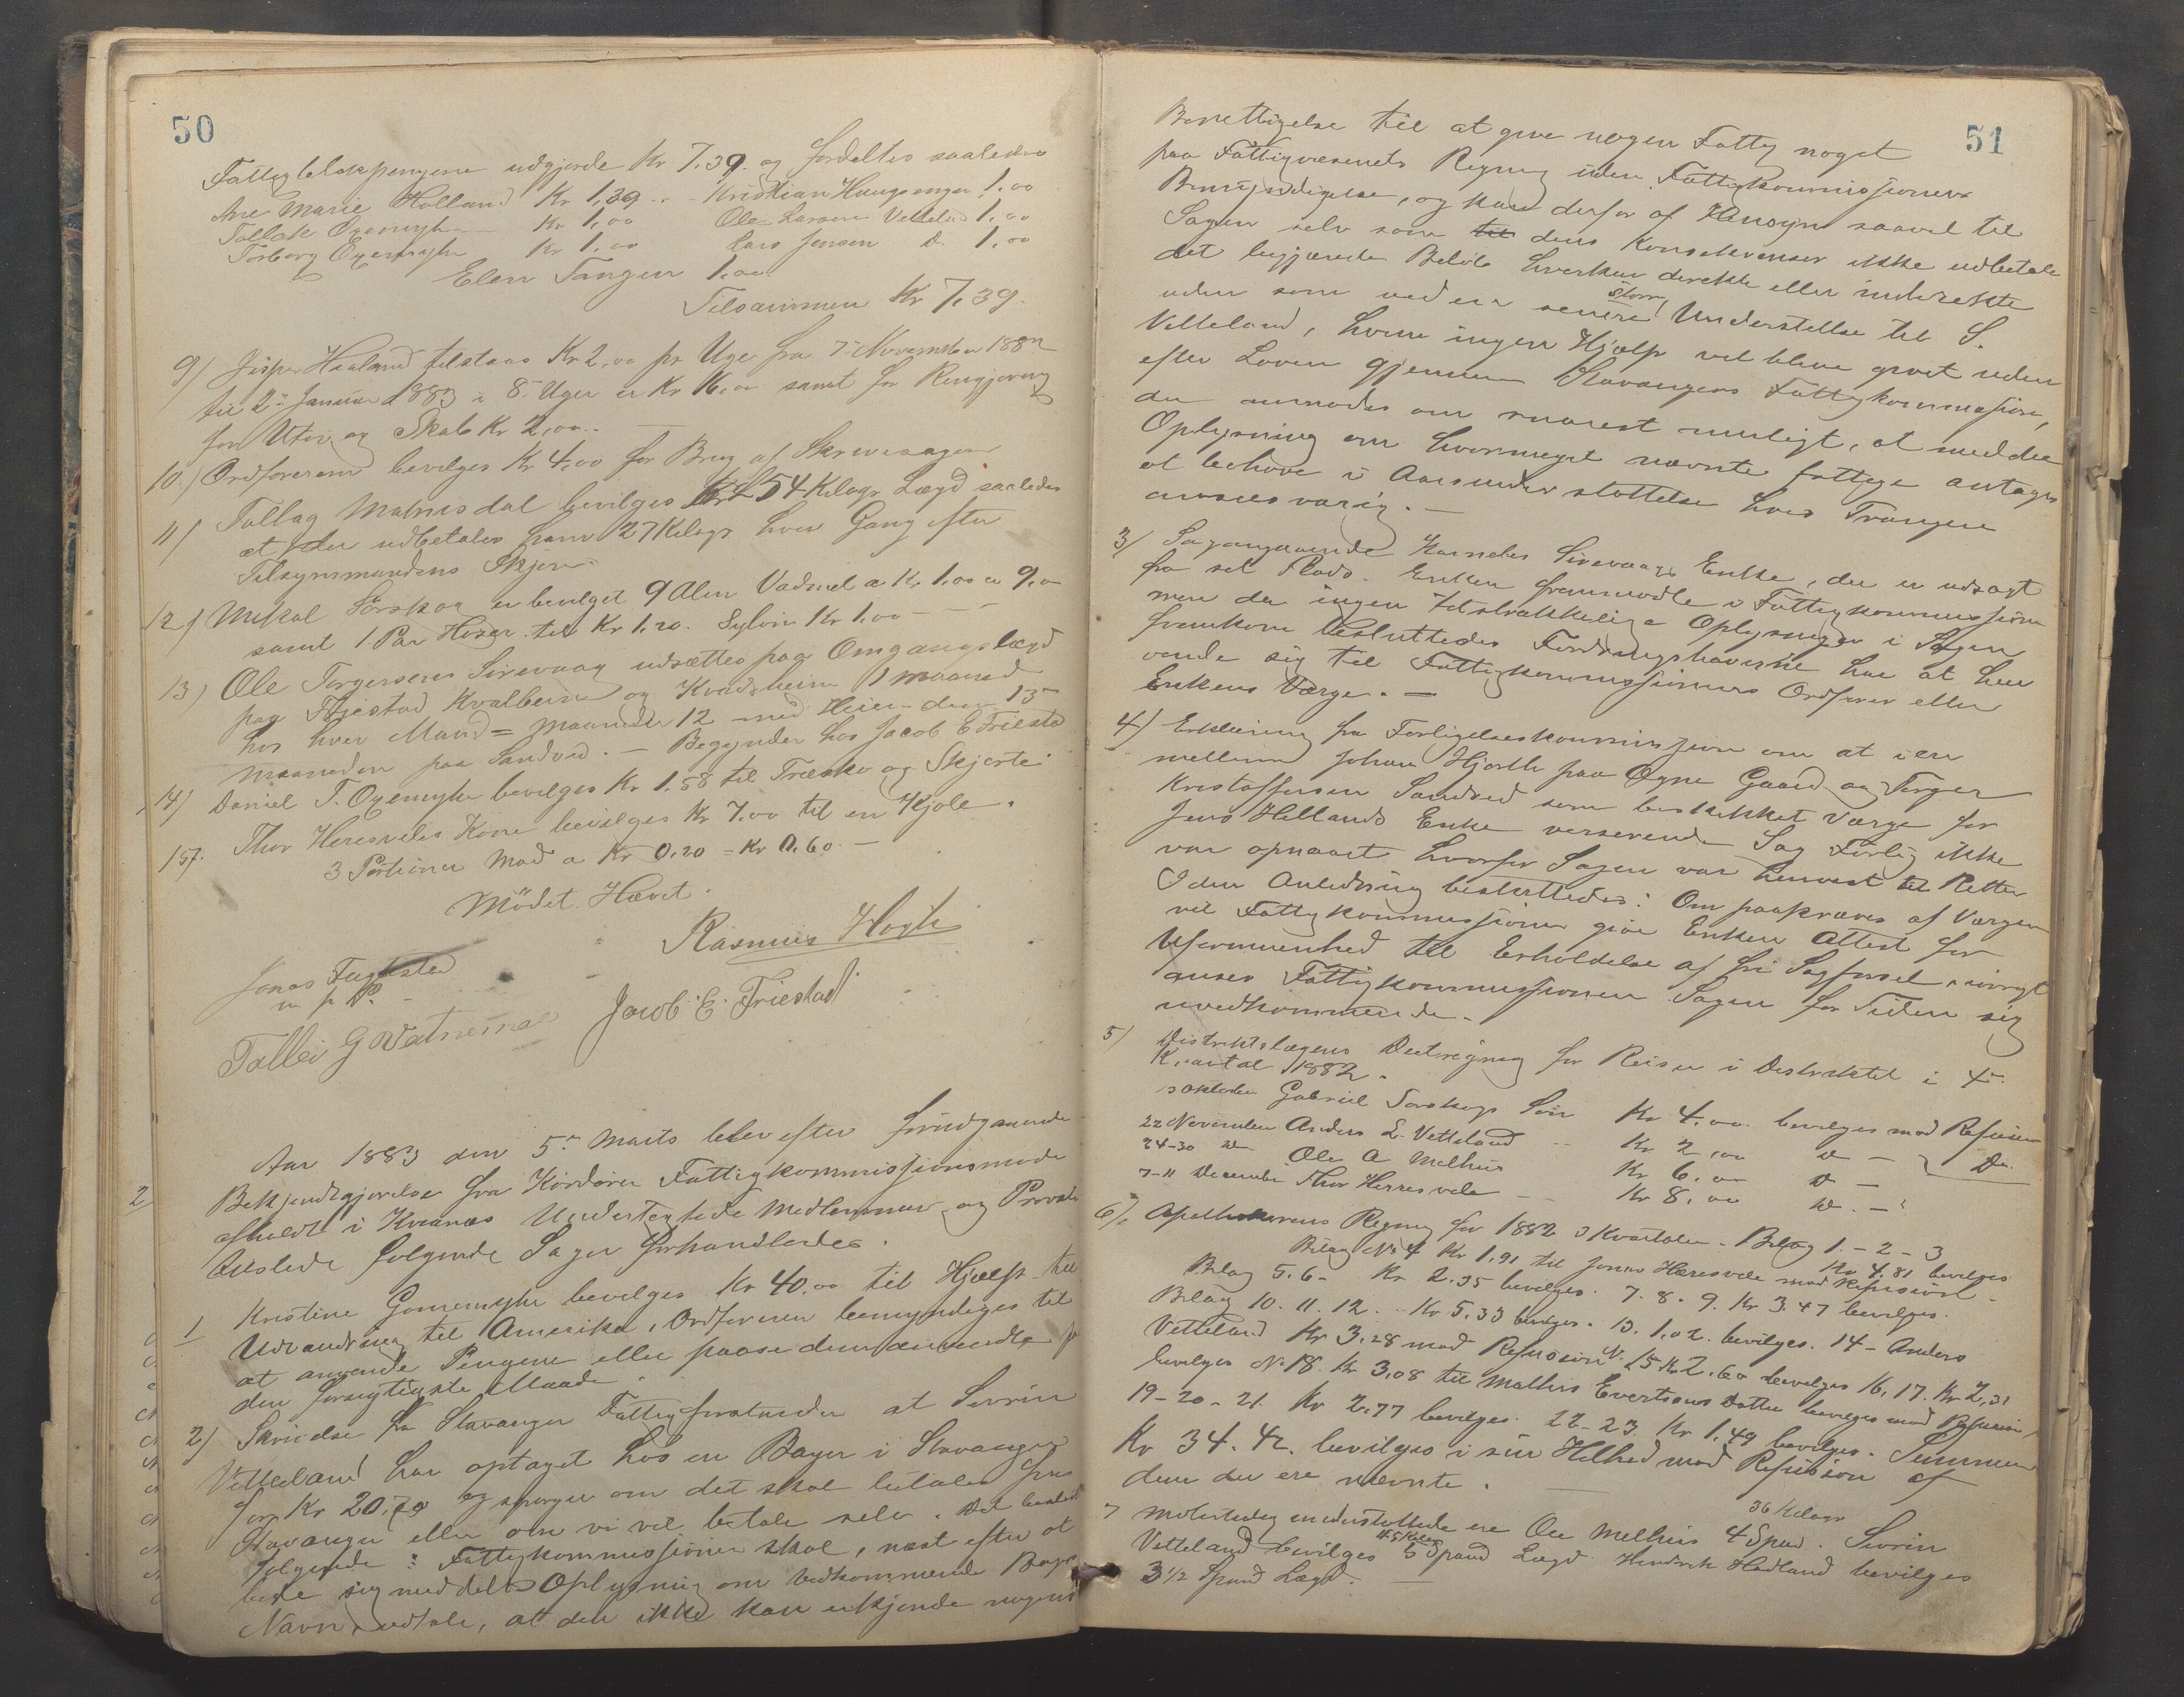 50
Fattigblokpengene udgjorde Kr 7.39. og fordeltes saaledes
Ane Marie Holland Kr 1,39 . - Kristian Haugsenger 1.00
Tollak Oxemyhr Kr 1,00 Ole Larsen Vetteland 1,00
Torborg Oxemyhr Kr 1.00 Lars Jensen D. 1,00
Elen Tangen 1.00
Tilsammen Kr 7,39.
9) Jisper Haaland tilstaaes Kr 2,00 pr Uge fra 7de November 1882
til 2den Januar 1883 i 8 Uger er Kr 16,00 samt for Rengjøring
for Utøi og Skab Kr 2,00. -
10.) Ordføreren bevilges Kr 4,00 for Brug af Skrivesager
11) Tallag Matnisdal bevilges 54 Kilogr Lægd saaledes
at der udbetales ham 27 Kilogr hver Gang efter
Tilsynsmandens Skjøn.
12) Mikal Sørskog er bevilget 9 Alen Vadmel a Kr 1.00 er 9,00
samt 1 Par Hoser til Kr 1,20. Syløn Kr 1,00
13) Ole Torgersens Sirevaag udsættes paa Omgangslægd
paa Friestad Kvalbein og Kvadsheim 1 maaned
hos hver Mand = maaneder 12 med Heien - den 13de
maaneden paa Sandved. - Begynder hos Jacob E Friestad
14) Daniel T. Oxemyhr bevilges Kr 1.58 til Træsko og Skjorte.
15). Thor Heresvelas Kone bevilges Kr 7.00 til en Kjole.
3 Portioner Mad a Kr 0.20 = Kr 0.60. -
Mödet Hævet.
Rasmus Høgh
Jonas Fuglestad
m p P.
Jacob E. Friestad
Tollei G Vatnemo
Aar 1883 den 5te Marts blev efter forudgaaende
2 Bekjendtgjørelse fra Kirkedøren Fattigkommissionsmøde
afholdt i Kvianes Undertegnede Medlemmer og Private
tilstede følgende Sager forhandledes.
1 Kristine Gomemyhr bevilges Kr 40.00 til Hjælp til
Udvandring til Amerika, Ordføreren bemyndiges til
at anvende Pengene eller paase dem anvendte paa
den forsigtigste Maade.
2) Skrivelse fra Stavanger Fattigforstander at Sivrin
Vetteland har optaget hos en Bager i Stavanger
for Kr 20.70 og spørger om det skal betales fra
Stavanger eller om vi vil betale selv. Det besluttedes
følgende: Fattigkommissionen skal, næst efter at
bede sig meddelt Oplysning om Vedkommende Bagers
Navn, udtale, at den ikke kan erkjende nogens
51
Berettigelse til at give nogen Fattig noget
paa Fattigvæsenets Regning uden Fattigkommissionens
Bemyndigelse, og kan derfor af Hensyn saavel til
Sagen selv som til dens Konsekvenser ikke udbetale
det begjærede Beløb hverken direkte eller indirekte
uden som ved en senere større Understøttelse til S.
Vetteland, hvem ingen Hjælp vil blive givet uden
efter Loven gjennem Stavangers Fattigkommission,
der anmodes om snarest muligt, at meddele
Oplysning om hvormeget nævnte fattige antages
at behøve i Aarsunderstøttelse hvis Trangen
ansees varig. -
3) Sag angaaende Karneles Sirevaags Enke, der er udsagt
fra sit Plads. Enken fremmødte i Fattigkommissionen
men da ingen tilstrækkelige Oplysninger i Sagen
fremkom besluttedes Fordringshaverne har at hen
vende sig til Fattigkommissionens Ordfører eller
Enkens Værge. -
4) Erklæring fra Forligelseskommissionen om at i en
mellem Johan Hjorth paa Ogne Gaard og Torger
Kristoffersen Sandved som beskikket Værge for
Jens Hellands Enke verserende Sag Forlig ikke
var opnaaet hvorfor Sagen var henvist til Retten
I den Anledning besluttedes: Om paakræves af Værgen
vil Fattigkommissionen give Enken Attest for
Uformuenhed til Erholdelse af fri Sagførsel, iøvrigt
anser Fattigkommissionen Sagen for Tiden sig
uvedkommende.
5) Distriktslægens Deelregning for Reiser i Distriktet i 4de
Kvartal 1882.
3 Oktober Gabriel Sørskogs Søn Kr 4.00. bevilges mod Refusion
22 November Anders L. Vetteland - Kr 2,00 do - Do.
24-30 do Ole A Melhus Kr 6.00 do -
7-11 December Thor Herresvela - Kr 8.00 do. -
6). Apothekerens Regning for 1882 3 Kvartaler. - Bilag 1. - 2 - 3
Kr 4.81 bevilges
Bilag No 4 Kr 1.91 til Jonas Heresvela mod Refusion.
Bilag 5.6 - Kr 2.35 bevilges. 7. 8. 9. Kr 3.47 bevilges.
Bilag 10. 11. 12. - Kr 5.33 bevilges. 13. 1.02. bevilges. 14 - Anders
Vetteland Kr 3.28 mod Refusion N. 15 Kr 2.60 bevilges 16. 17. Kr 2,31
bevilges No 18. Kr 3,08 til Mathis Evertsens Datter bevilges mod Refusion,
19 - 20 - 21. Kr 2.77 bevilges. 22 - 23. Kr 1.49 bevilges. Summen
Kr 34.42. bevilges i sin Helhed mod Refusion af
dem der ere nævnte.
36 Kilogr
7 Midlertidig understøttede ere Ole Melhus 4 Spand. Sivrin
Vetteland bevilges 45 Kilogr 5 Spand Lægd. Hendrik Hadland bevilges
3 1/2 Spand Lægd. -